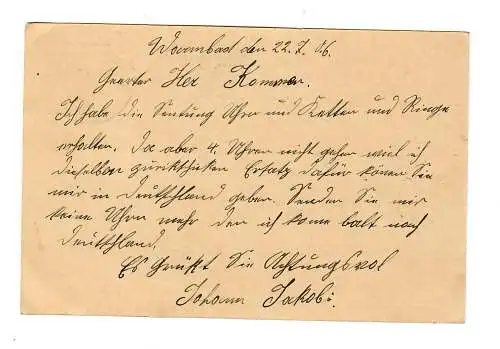 Warmbad den 22.7.06.
Geerter Her Kommer.
Ich habe die Sentung Uhren und Ketten und Ringe
erhalten. Da aber 4. Uhren nicht gehen wiel ich
dieselben zurikschiken Ersatz dafür könen Sie
mir in Deutschland geben. Senden Sie mir
keine Uhren mehr den ich kome balt nach
Deutschland.
Es Grüßt Sie Achtungsvol
Johann Jakobi.